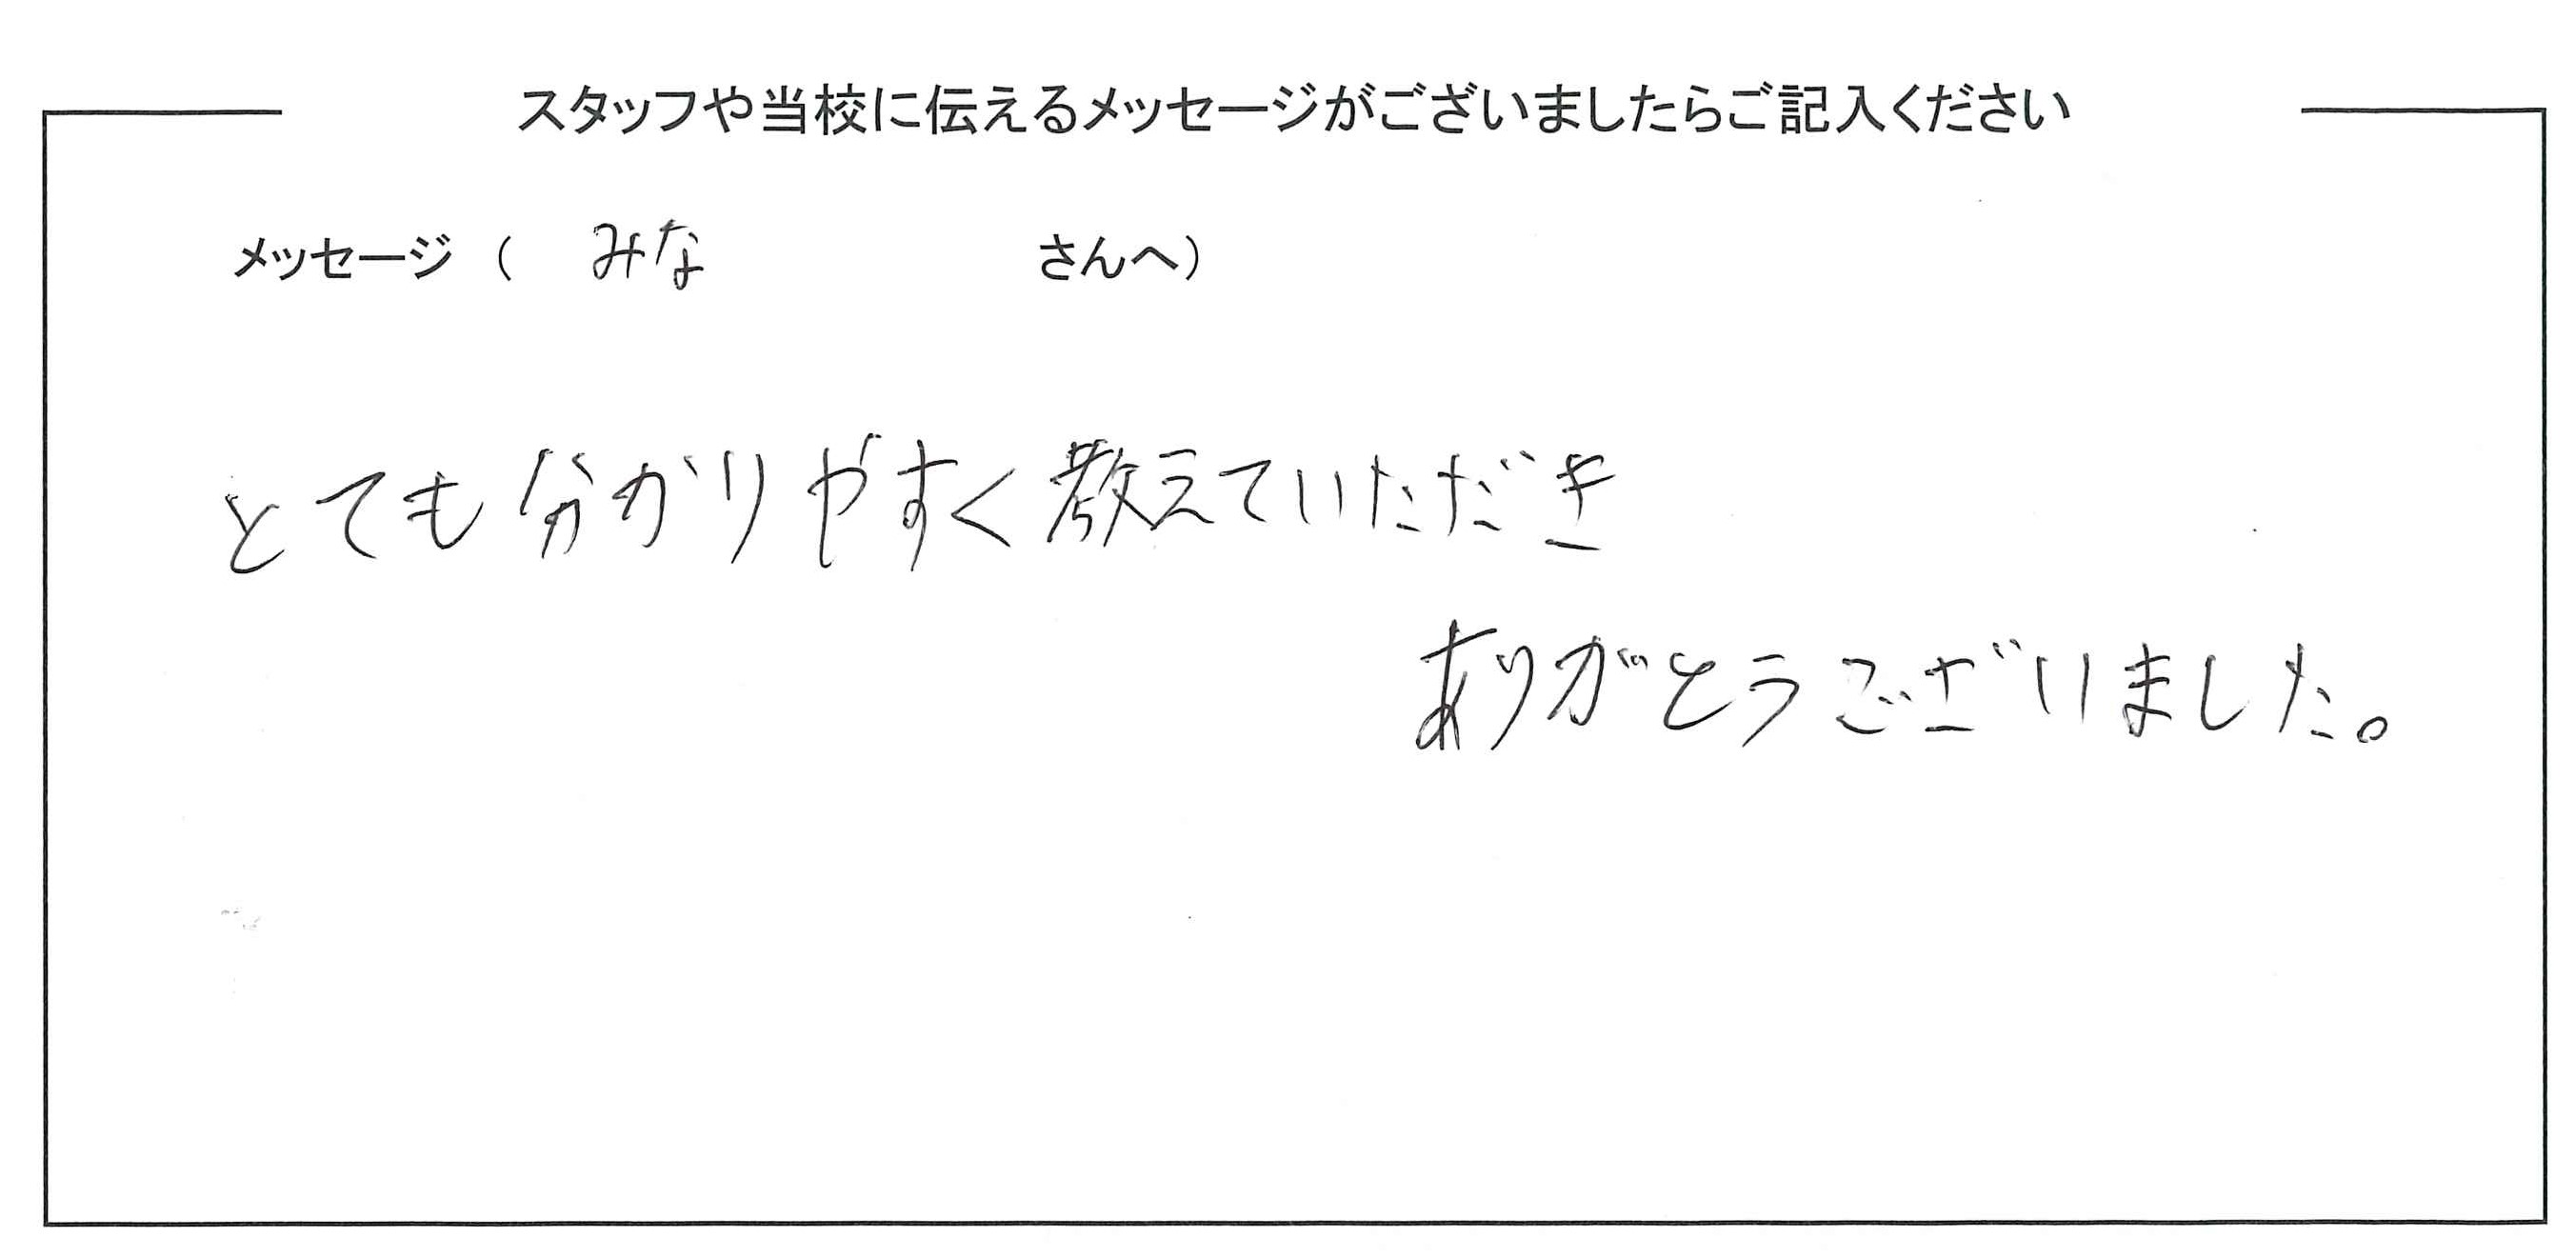 スタッフや当校に伝えるメッセージがございましたらご記入ください
メッセージ（ みな さんへ）
とても分かりやすく教えていただき
ありがとうございました。